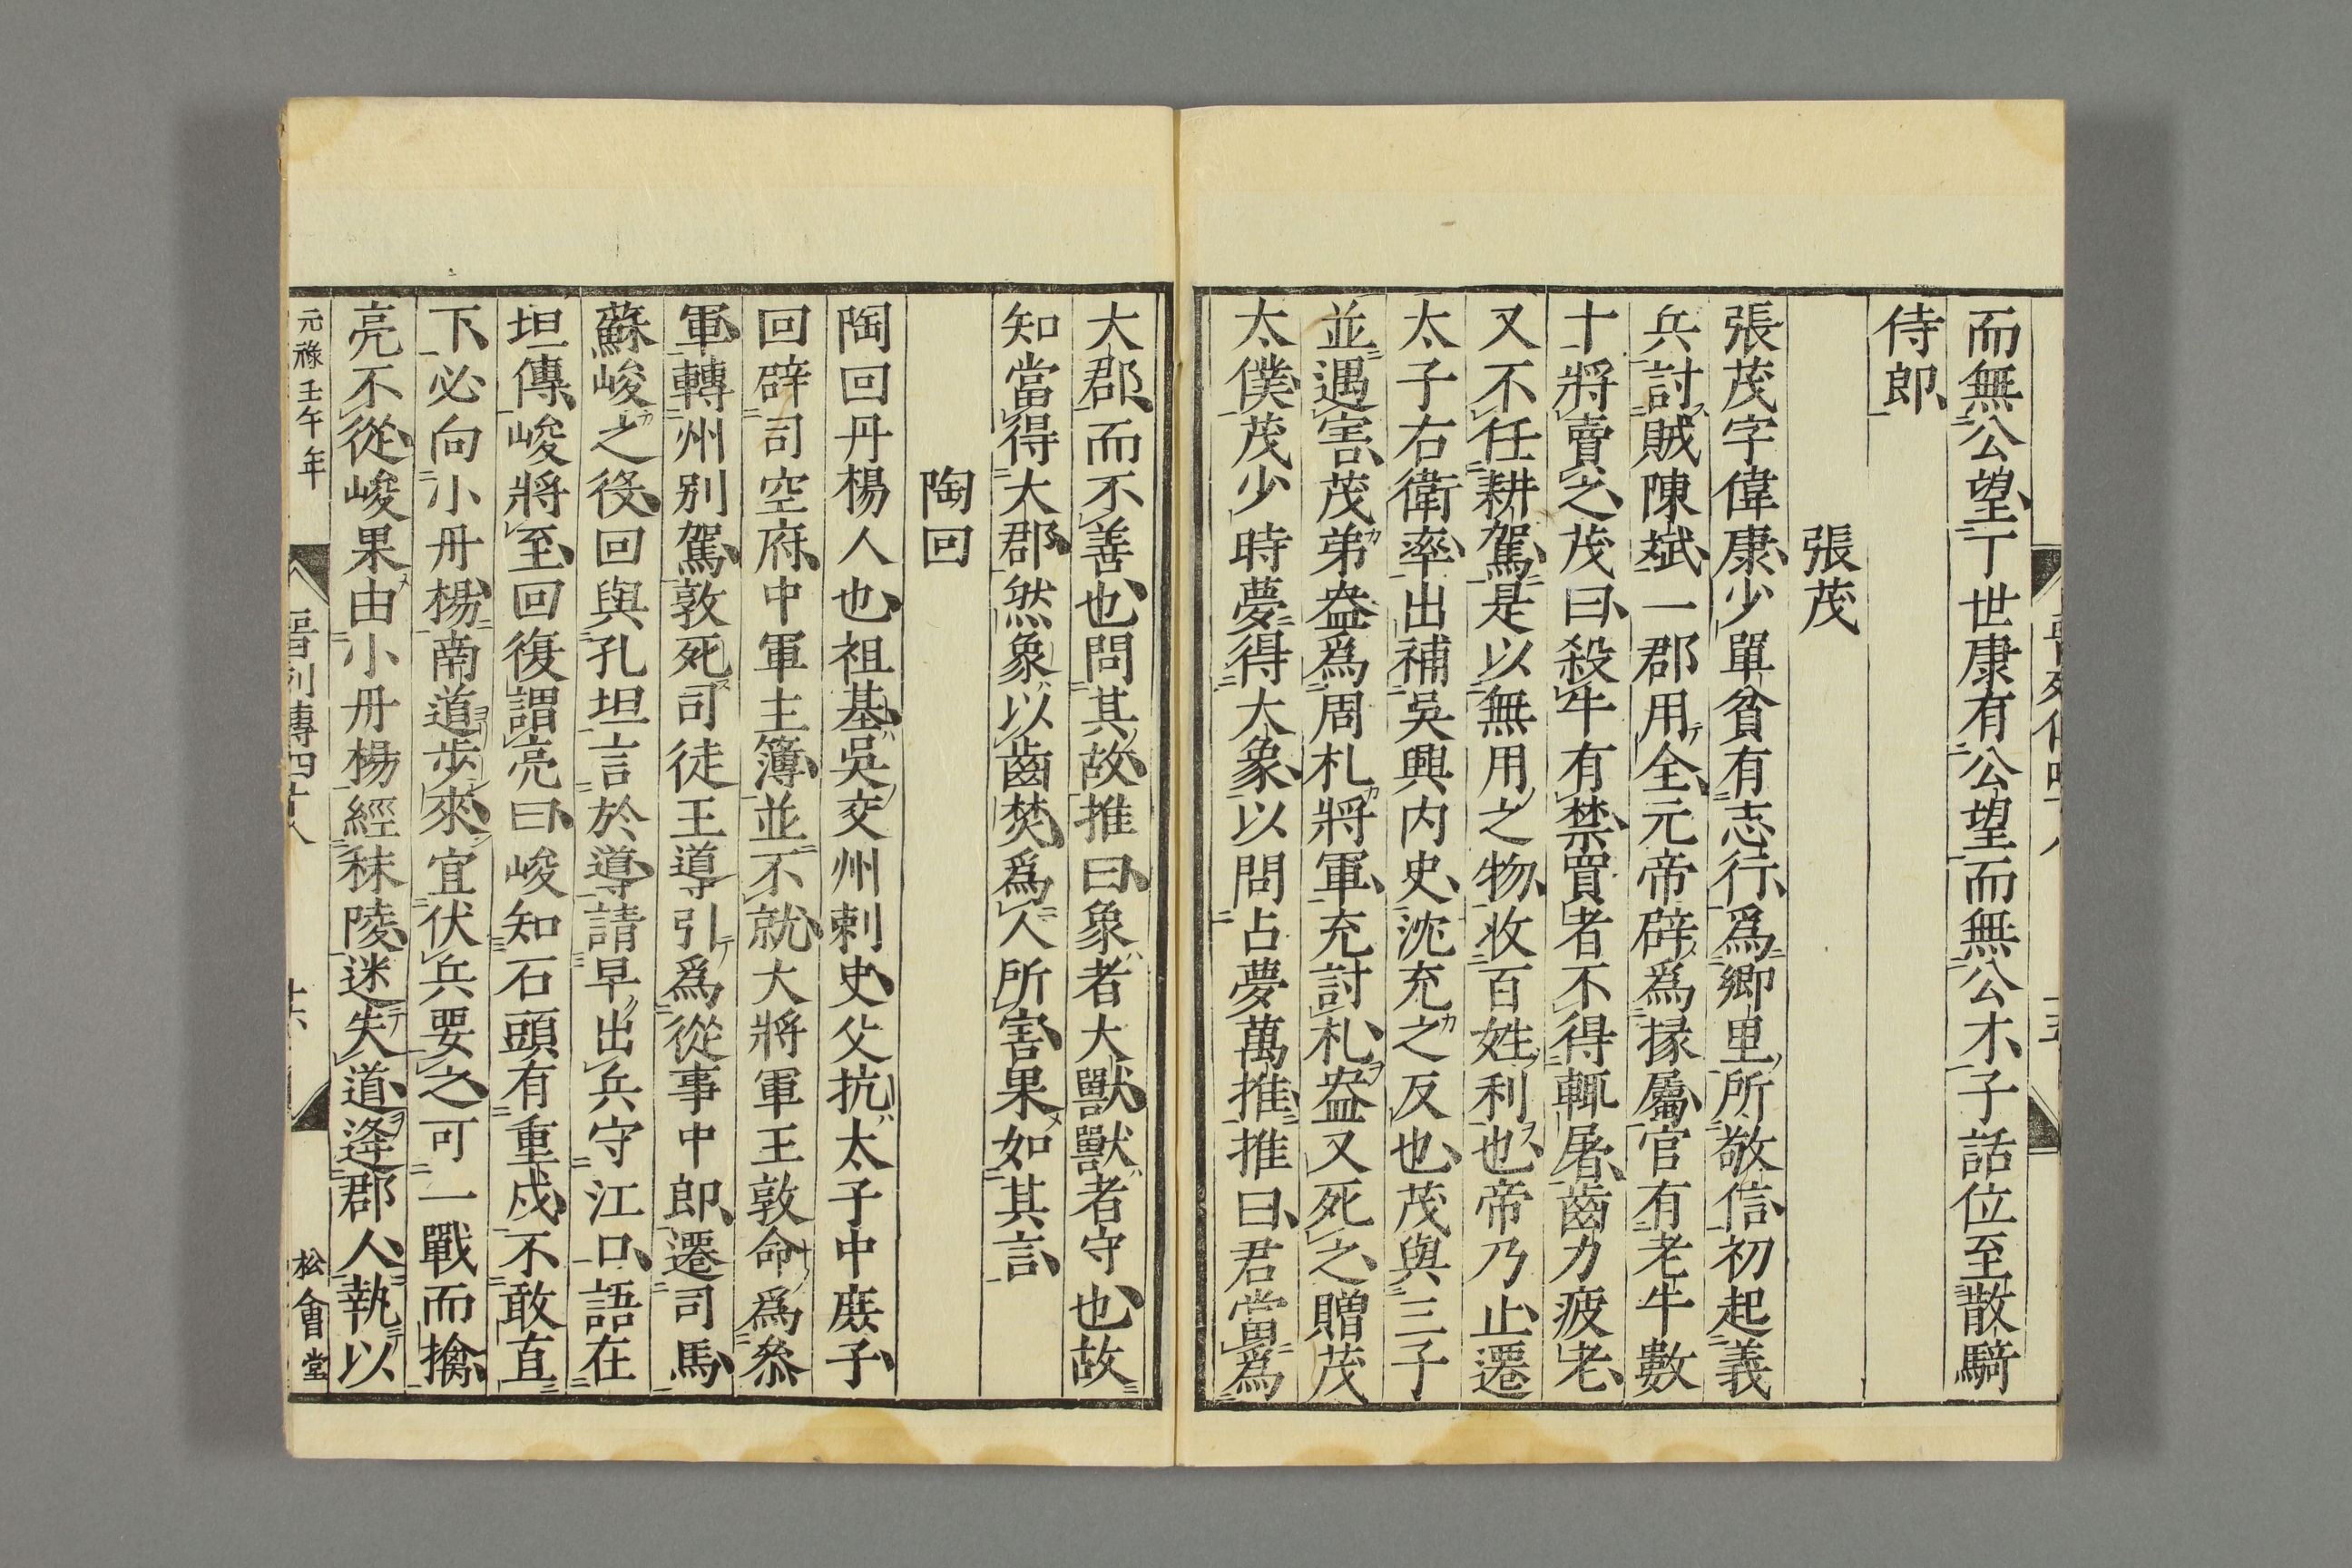 而無公望丁世康有公望而無公木子話位至散騎
侍郎
張茂
張茂字偉康少單貧有志行爲鄉里所敬信初起義
兵討賊陳斌一郡用全元帝辟爲掾屬官有老牛數
十將賣之茂曰殺牛有禁買者不得輒屠齒力疲老
又不任耕駕是以無用之物收百姓利也帝乃止遷
太子右衛率出補吳興内史沈充之反也茂與三子
並遇害茂弟盎爲周札將軍充討札盎又死之贈茂
太僕茂少時夢得大象以問占夢萬推推曰君當爲
大郡而不善也問其故推曰象者大獸獸者守也故
知當得大郡然象以齒焚爲人所害果如其言
陶回
陶回丹楊人也祖基吳交州刺史父抗太子中庶子
回辟司空府中軍主簿並不就大將軍王敦命爲參
軍轉州别駕敦死司徒王導引爲從事中郎遷司馬
蘇峻之役回與孔坦言於導請早出兵守江口語在
坦傳峻將至回復謂亮曰峻知石頭有重戍不敢直
下必向小丹楊南道步來宜伏兵要之可一戰而擒
亮不從峻果由小丹楊經秣陵迷失道逢郡人執以
元祿壬午年 晋列傳四十八 十六 松會堂